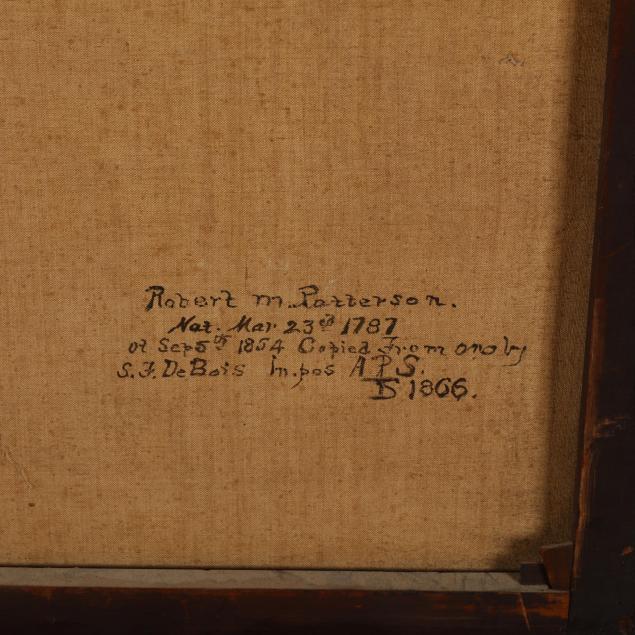 Robert M. Patterson.
Nat. Mar 23d 1787
ot Sep 5th 1854 Copied from one by
S. F. DeBois In. pos A.P.S.
D 1866.